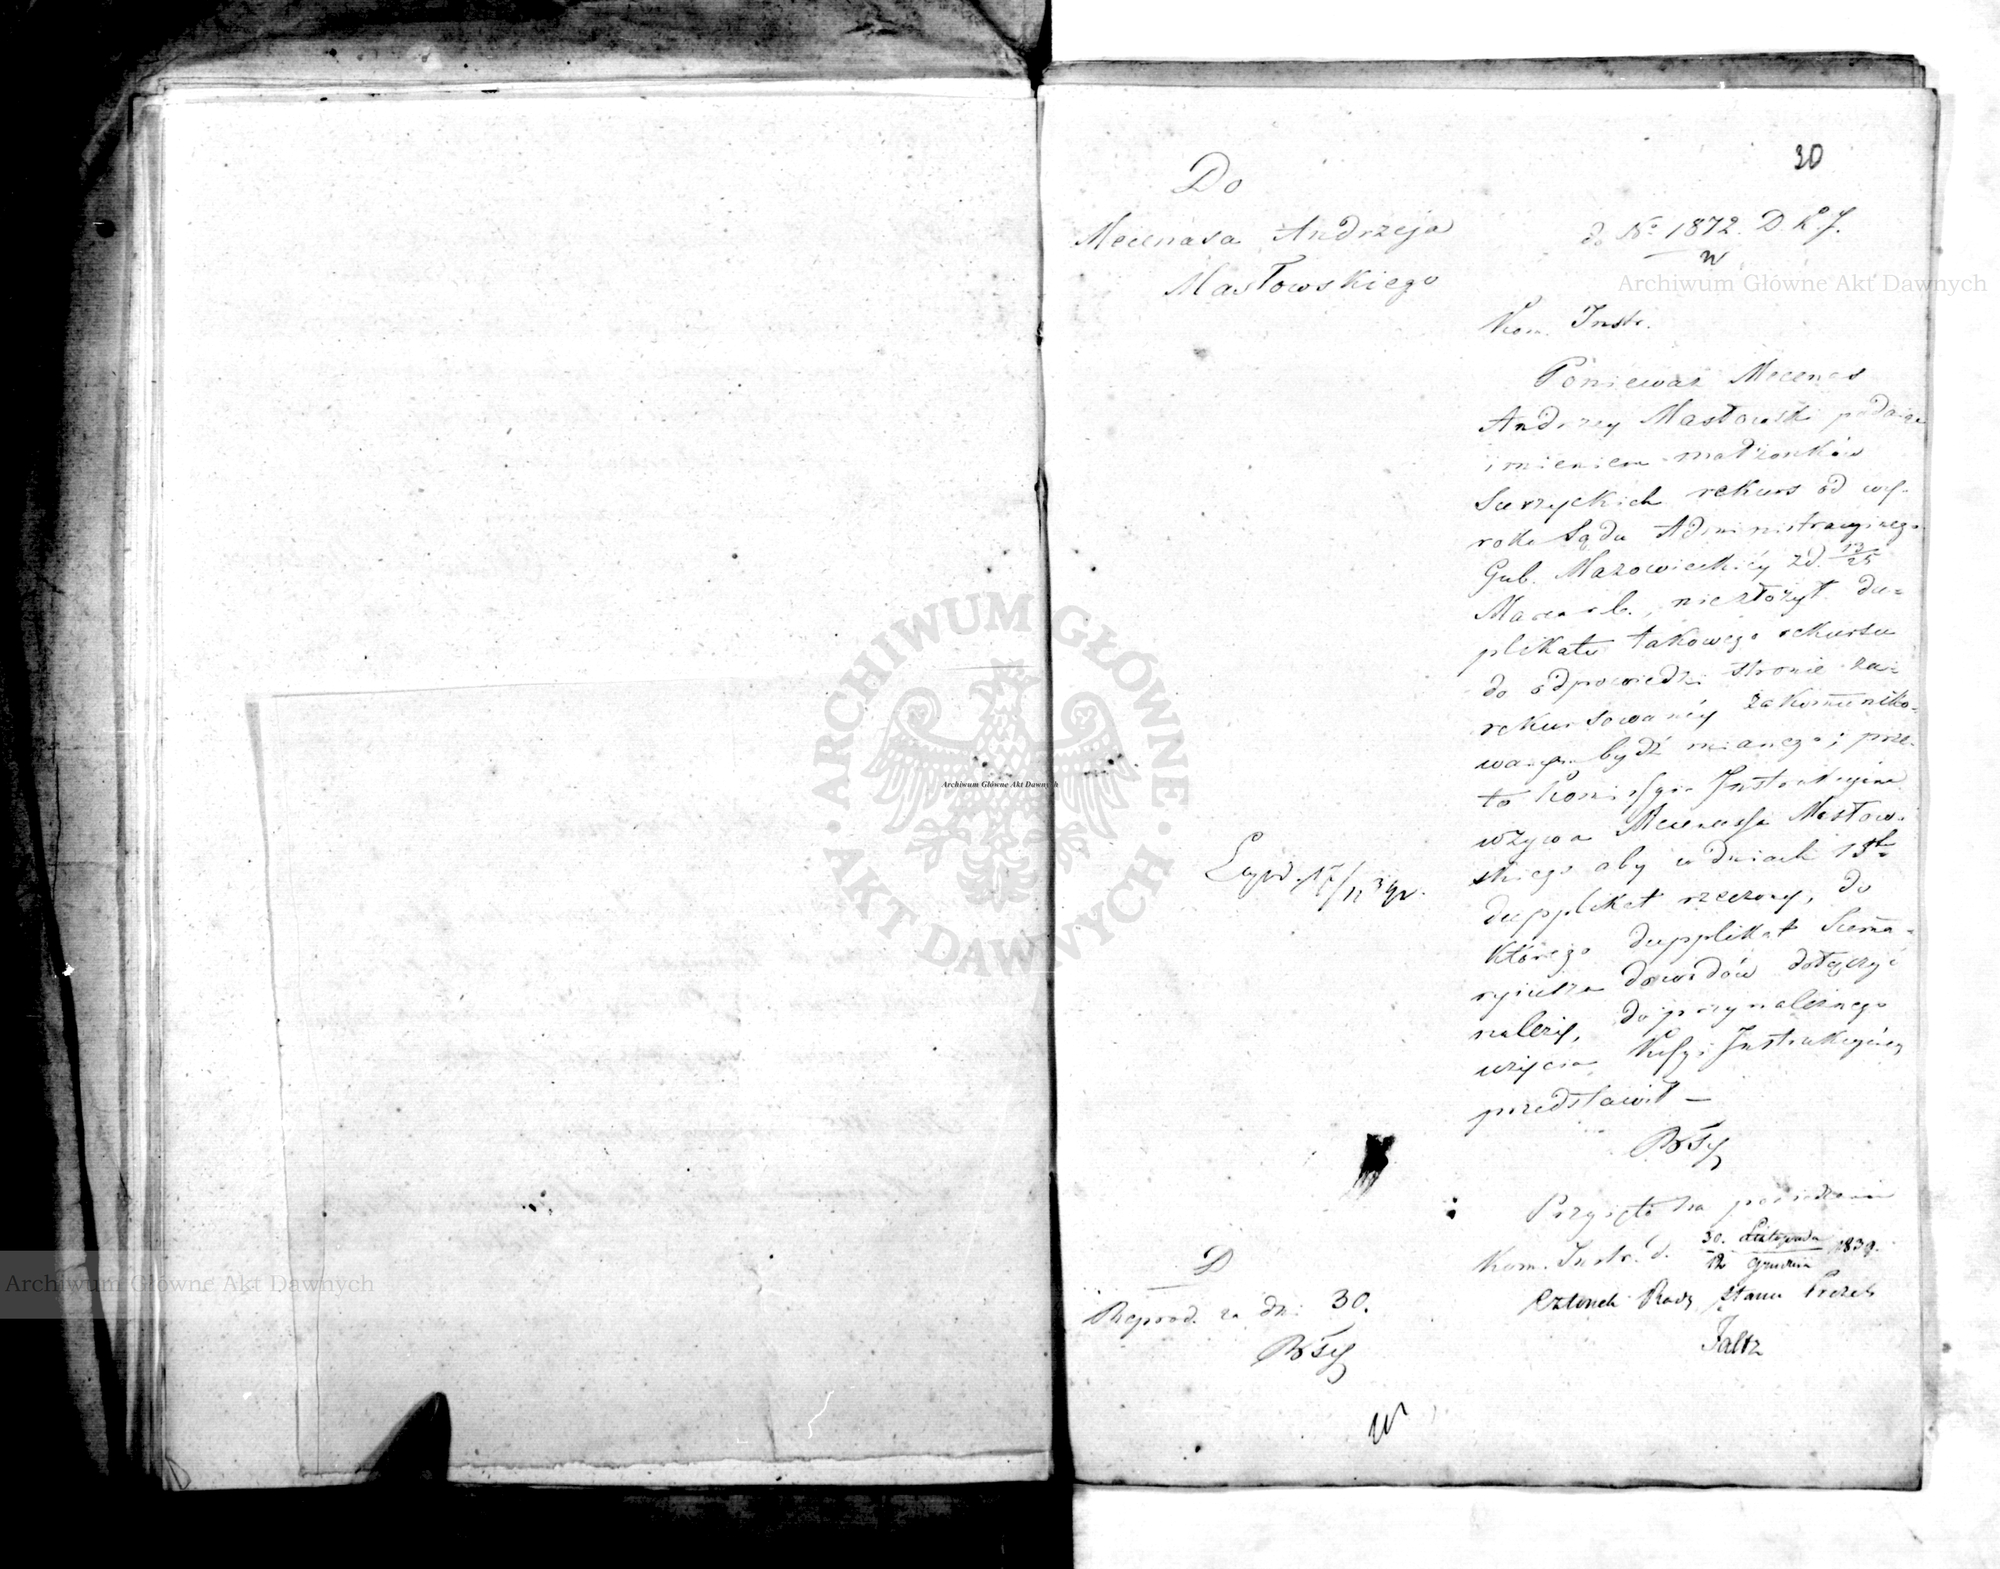 30
Do
Mecenasa Andrzeja
Masłowskiego
do No 1872. D K. J.
W
Kom. Instr.
Ponieważ Mecenas
Andrzey Masłowski podając
imieniem małżonków
Suszyckich rekurs od wy-
roku Sądu Administracyinego
Gub. Mazowieckiéy z d. 13/25
Marca r. b., niezłożył du-
plikatu takowego rekursu
do odpowiedzi stronie za-
rekursowanéy zakomuniko-
wanym bydź mianego; prze-
to Kommissyia Instrukcyina
wzywa Mecenassa Masłow-
skiego aby w dniach 15tu
dupplikat rzeczony, do
którego dupplikat Summa-
ryiusza dowodów dołączyć
należy, do przynależnego
użycia Kssyi Instrukcyinéy
przedstawił —
Przyjęto na posiedzeniu
Kom. Instr. d. 30. Listopada / 12 Grudnia 1839.
Członek Rady Stanu Prezes
Faltz
D
Reprod. za dni 30.
W
ARCHIWUM GŁÓWNE AKT DAWNYCH
Archiwum Główne Akt Dawnych
Archiwum Główne Akt Dawnych
Archiwum Główne Akt Dawnych